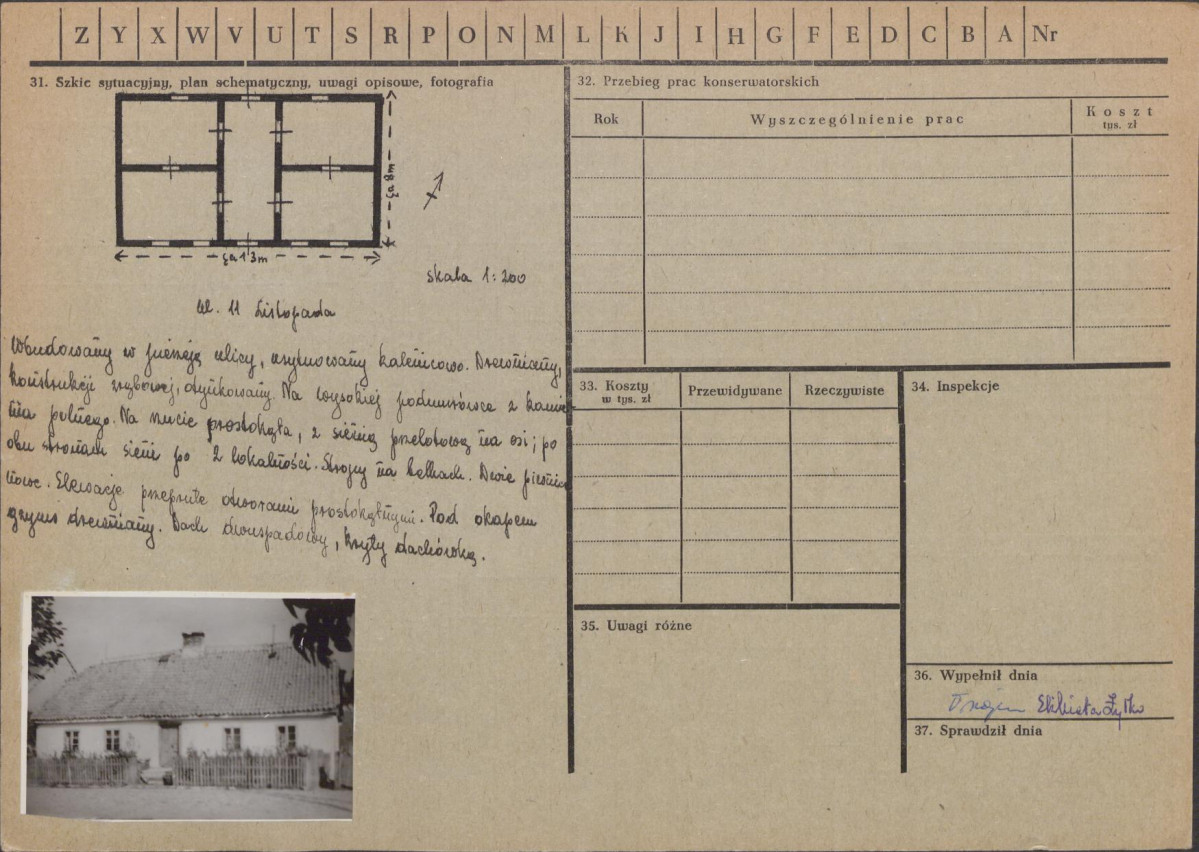 Z Y X W V U T S R P O N M L K J I H G F E D C B A Nr
31. Szkic sytuacyjny, plan schematyczny, uwagi opisowe, fotografia
ca 8m
ca 13m
skala 1:200
ul. 11 Listopada
Wbudowany w pierzeję ulicy, usytuowany kalenicowo. Drewniany,
konstrukcji zrębowej, otynkowany. Na wysokiej podmurówce z kamie
nia polnego. Na rzucie prostokąta, z sienią przelotową na osi; po
obu stronach sieni po 2 lokalności. Stropy na belkach. Dwie piwnice
Elewacje przeprute otworami prostokątnymi. Pod okapem
gzyms drewniany. Dach dwuspadowy, kryty dachówką.
32. Przebieg prac konserwatorskich
Rok
Wyszczególnienie prac
Koszt
tys. zł
33. Koszty
w tys. zł
Przewidywane
Rzeczywiste
34. Inspekcje
35. Uwagi różne
36. Wypełnił dnia
Elżbieta Żytko
37. Sprawdził dnia